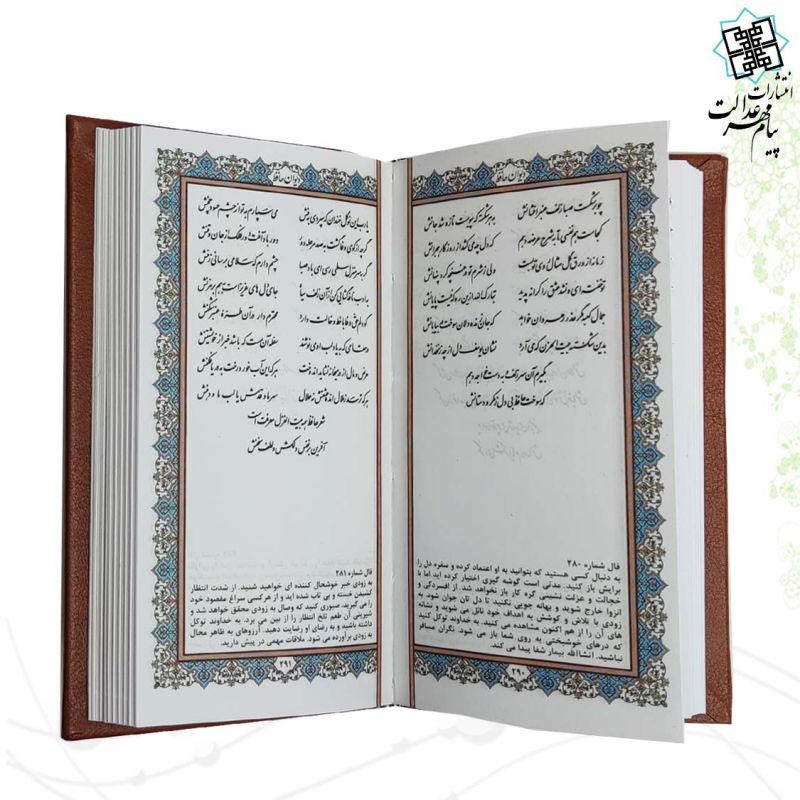 انتشارات
پیام مهر عدالت
دیوان حافظ
چو برشکست صبا زلف عنبرافشانش بهر شکسته که پیوست تازه شد جانش
کجاست همنفسی تا به شرح عرضه دهم که دل چه می کشد از روزگار هجرانش
زمانه از ورق گل مثال روی تو بست ولی ز شرم تو در غنچه کرد پنهانش
تو خفته ای و نشد عشق را کرانه پدید تبارک الله از این ره که نیست پایانش
جمال کعبه مگر عذر رهروان خواهد که جان زنده دلان سوخت در بیابانش
بدین شکسته بیت الحزن که می آرد نشان یوسف دل از چه زنخدانش
بگیرم آن سر زلف و به دست خواجه دهم
که سوخت حافظ بی دل ز مکر و دستانش
فال شماره ۲۸۰
به دنبال کسی هستید که بتوانید به او اعتماد کرده و سفره دل را
برایش باز کنید. مدتی است گوشه گیری اختیار کرده اید اما با
خجالت و عزلت نشینی گره کار باز نخواهد شد. از افسردگی و
انزوا خارج شوید و بهانه جویی نکنید تا دل تان جوان شود. به
زودی با تلاش و کوشش به اهداف خود نائل می شوید و نشانه
های آن را از هم اکنون مشاهده می کنید. به خداوند توکل کنید
که درهای خوشبختی به روی شما باز می شود. نگران مسافر
نباشید. انشاالله بیمار شفا پیدا می کند.
۲۹۰
دیوان حافظ
یا رب این نوگل خندان که سپردی به منش می سپارم به تو از چشم حسود چمنش
گر چه از کوی وفا گشت به صد مرحله دور دور باد آفت دور فلک از جان و تنش
گر به سرمنزل سلمی رسی ای باد صبا چشم دارم که سلامی برسانی ز منش
به ادب نافه گشایی کن از آن زلف سیاه جای دل های عزیز است به هم برمزنش
گو دلم حق وفا با خط و خالت دارد محترم دار در آن طره عنبرشکنش
در مقامی که به یاد لب او می نوشند سفله آن مست که باشد خبر از خویشتنش
عرض و مال از در میخانه نشاید اندوخت هر که این آب خورد رخت به دریا فکنش
هر که ترسد ز ملال انده عشقش نه حلال سر ما و قدمش یا لب ما و دهنش
شعر حافظ همه بیت الغزل معرفت است
آفرین بر نفس دلکش و لطف سخنش
فال شماره ۲۸۱
به زودی خبر خوشحال کننده ای خواهید شنید. از شدت انتظار
کشیدن خسته و بی تاب شده اید و از هر کسی سراغ مقصود خود
را می گیرید. صبوری کنید که وصال به زودی محقق خواهد شد و
شیرینی آن طعم تلخ انتظار را از بین می برد. به خداوند توکل
داشته باشید و به رضای او رضایت دهید. آرزوهای به ظاهر محال
به زودی برآورده می شود. ملاقات مهمی در پیش دارید.
۲۹۱